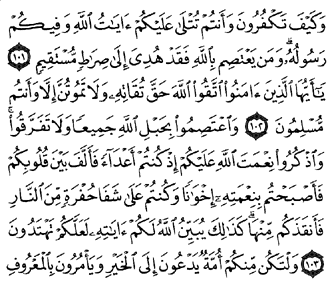 وَكَيْفَ تَكْفُرُونَ وَأَنتُمْ تُتْلَىٰ عَلَيْكُمْ ءَايَٰتُ ٱللَّهِ وَفِيكُمْ
رَسُولُهُۥ ۗ وَمَن يَعْتَصِم بِٱللَّهِ فَقَدْ هُدِىَ إِلَىٰ صِرَٰطٍ مُّسْتَقِيمٍ ١٠١
يَٰٓأَيُّهَا ٱلَّذِينَ ءَامَنُوا۟ ٱتَّقُوا۟ ٱللَّهَ حَقَّ تُقَاتِهِۦ وَلَا تَمُوتُنَّ إِلَّا وَأَنتُم
مُّسْلِمُونَ ١٠٢ وَٱعْتَصِمُوا۟ بِحَبْلِ ٱللَّهِ جَمِيعًا وَلَا تَفَرَّقُوا۟ ۚ
وَٱذْكُرُوا۟ نِعْمَتَ ٱللَّهِ عَلَيْكُمْ إِذْ كُنتُمْ أَعْدَآءً فَأَلَّفَ بَيْنَ قُلُوبِكُمْ
فَأَصْبَحْتُم بِنِعْمَتِهِۦٓ إِخْوَٰنًا وَكُنتُمْ عَلَىٰ شَفَا حُفْرَةٍ مِّنَ ٱلنَّارِ
فَأَنقَذَكُم مِّنْهَا ۗ كَذَٰلِكَ يُبَيِّنُ ٱللَّهُ لَكُمْ ءَايَٰتِهِۦ لَعَلَّكُمْ تَهْتَدُونَ
١٠٣ وَلْتَكُن مِّنكُمْ أُمَّةٌ يَدْعُونَ إِلَى ٱلْخَيْرِ وَيَأْمُرُونَ بِٱلْمَعْرُوفِ